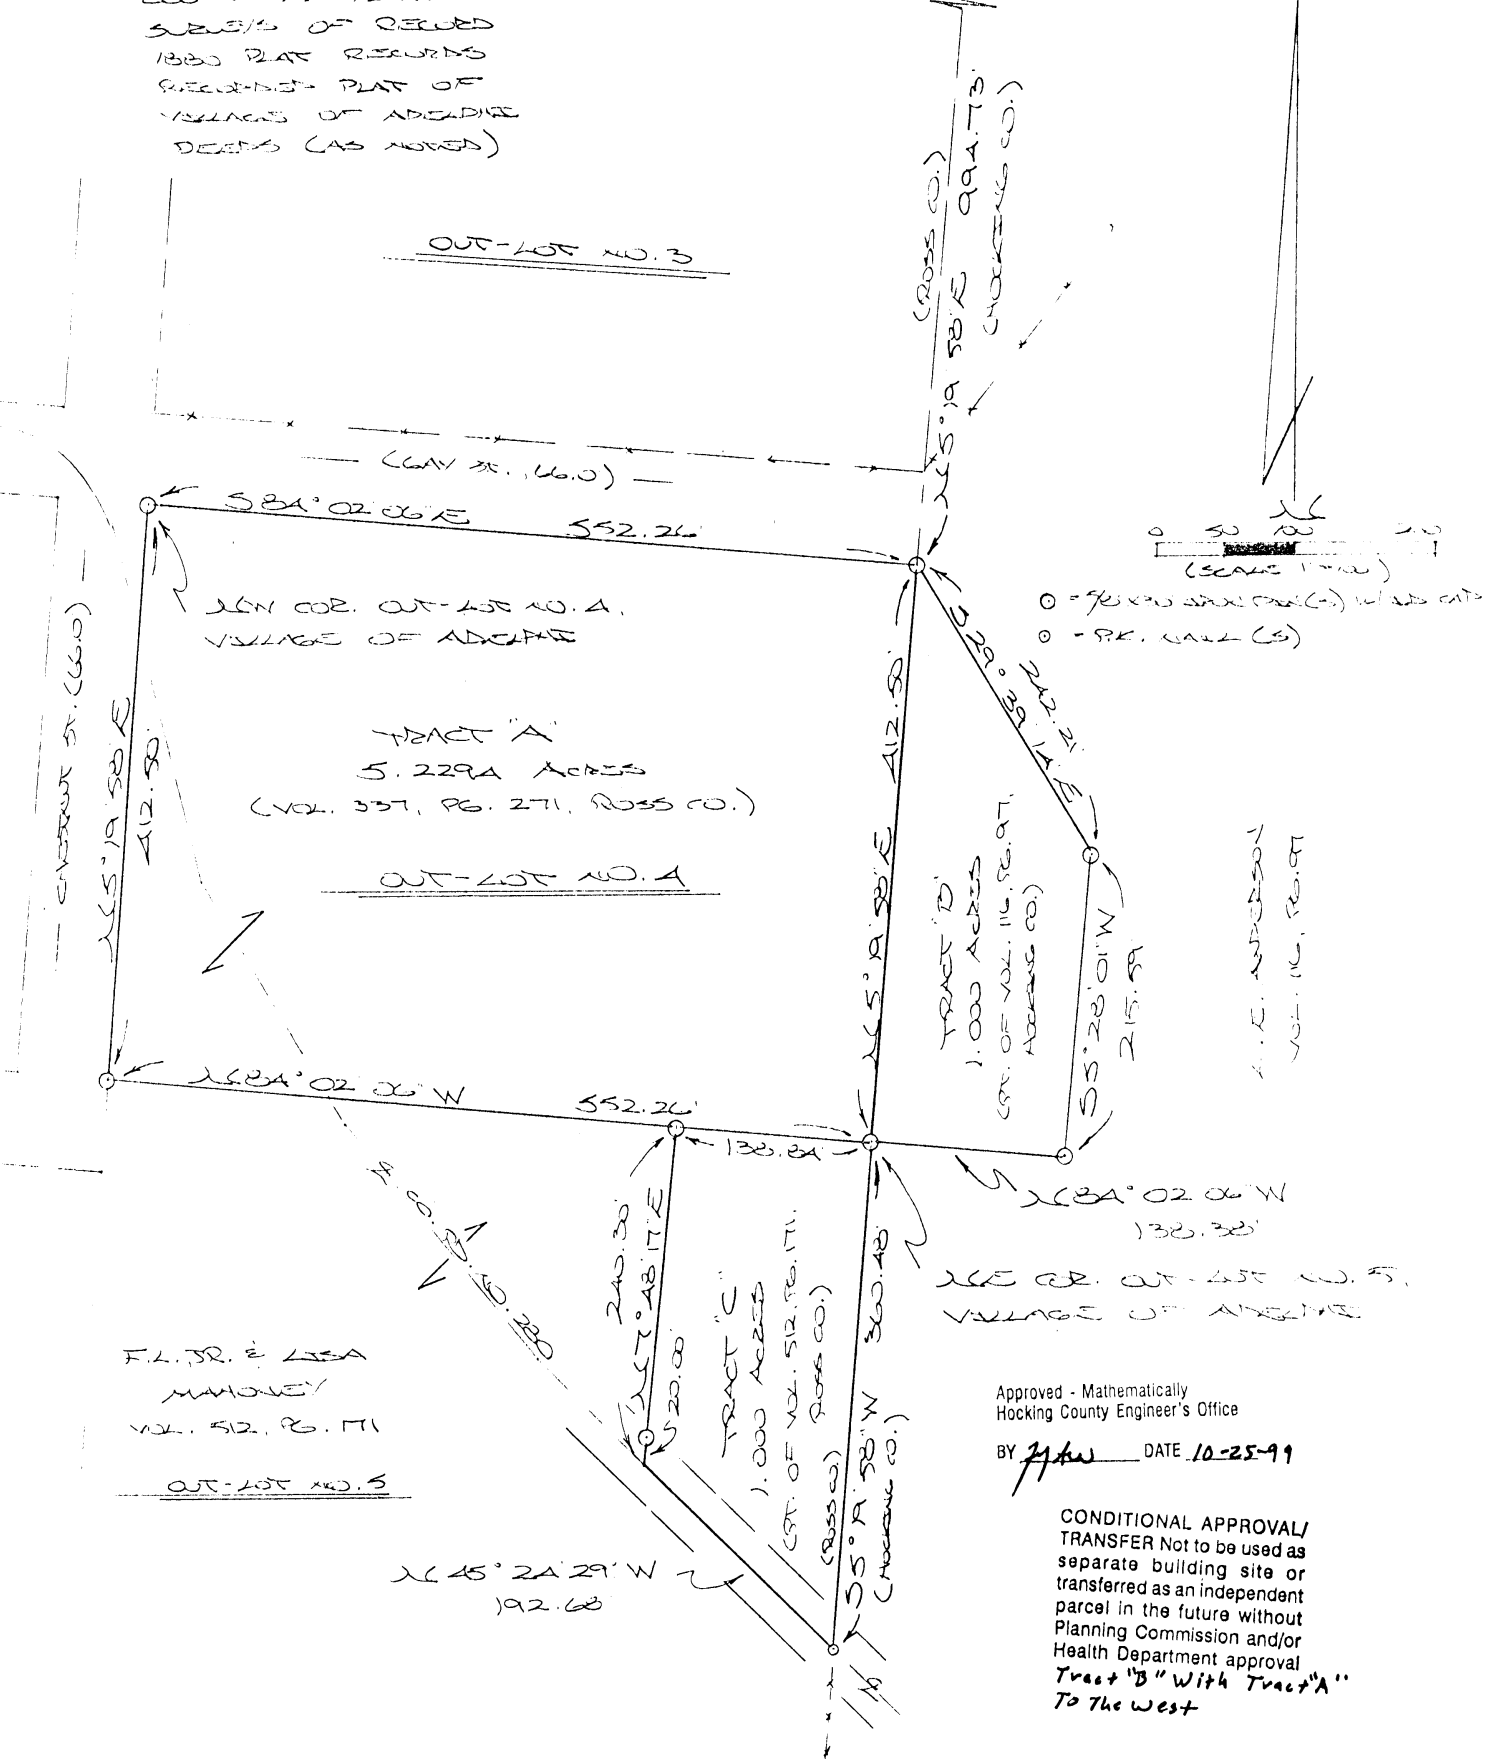 SURVEYS OF RECORD
1880 PLAT RECORDS
RECORDED PLAT OF
VILLAGE OF ADELPHI
DEEDS (AS NOTED)
OUT-LOT NO. 3
(ROSS CO.)
N 5° 19' 58" E 994.73'
(HOCKING CO.)
(GAY ST., 66.0)
S 84° 02' 06" E 552.26'
N
0 50 100 200
(SCALE 1"=100')
- 5/8 X 30 IRON PIN(S) W/ I.D. CAP
- P.K. NAIL (S)
NW COR. OUT-LOT NO. 4,
VILLAGE OF ADELPHI
ST. (66.0)
N 5° 19' 58" E
412.50'
TRACT "A"
5.2294 ACRES
(VOL. 337, PG. 271, ROSS CO.)
OUT-LOT NO. 4
N 5° 19' 58" E 412.50'
S 29° 39' 14" E
242.21'
TRACT "B"
1.000 ACRES
(PT. OF VOL. 116, PG. 97,
HOCKING CO.)
S 5° 28' 01" W
215.59'
ANDERSON
VOL. 116, PG. 97
N 84° 02' 06" W 552.26'
138.84'
N 84° 02' 06" W
138.38'
NE COR. OUT-LOT NO. 5,
VILLAGE OF ADELPHI
240.30'
N 7° 48' 17" E
20.00'
TRACT "C"
1.000 ACRES
(PT. OF VOL. 512, PG. 171,
ROSS CO.)
360.48'
S 5° 19' 58" W
(ROSS CO.)
(HOCKING CO.)
F.L. JR. & LISA
MAHONEY
VOL. 512, PG. 171
OUT-LOT NO. 5
N 45° 24' 29" W
192.68'
Approved - Mathematically
Hocking County Engineer's Office
BY DATE 10-25-99
CONDITIONAL APPROVAL/
TRANSFER Not to be used as
separate building site or
transferred as an independent
parcel in the future without
Planning Commission and/or
Health Department approval
Tract "B" With Tract "A"
To The West